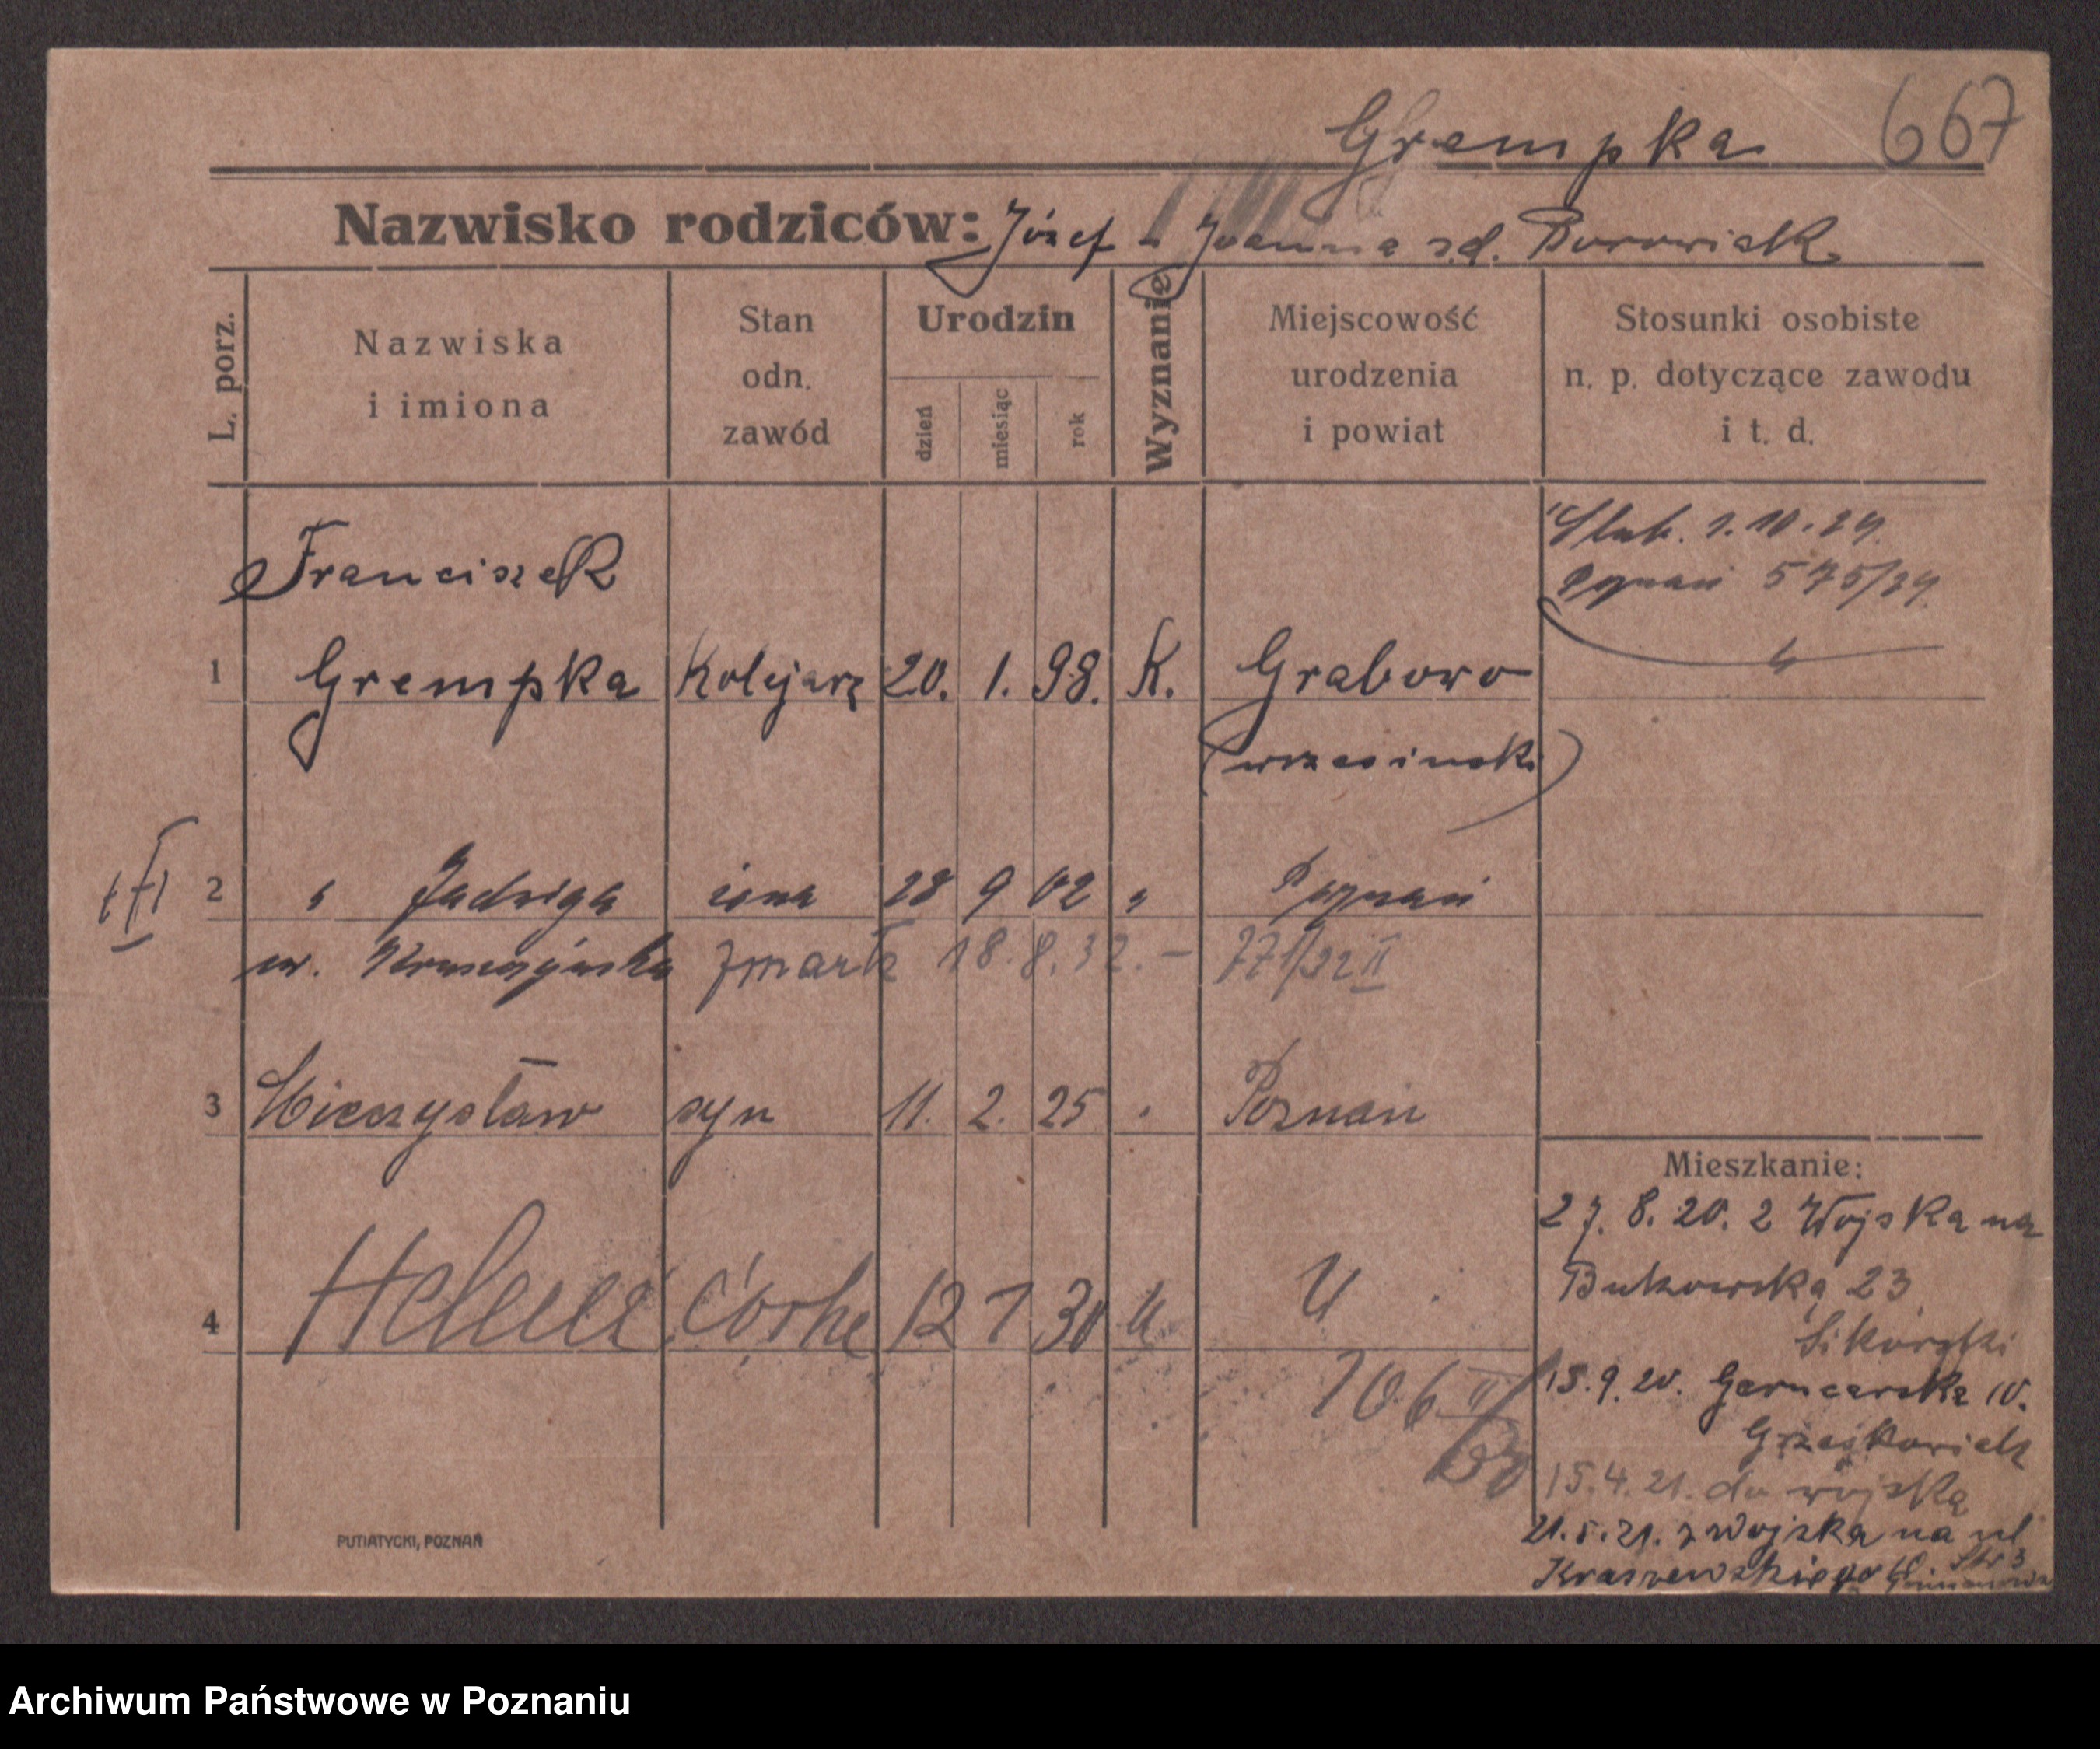 Grempka 667
Nazwisko rodziców: Józef - Joanna z.d. Borowiak
L. porz.
Nazwiska
i imiona
Stan
odn.
zawód
Urodzin
dzień
miesiąc
rok
Wyznanie
Miejscowość
urodzenia
i powiat
Stosunki osobiste
n. p. dotyczące zawodu
i t. d.
Franciszek
1 Grempka Kolejarz 20. 1. 98. K. Grabowo
(wrzesinski)
Slub. 1.10.24.
Poznań 575/24
2 " Jadwiga żona 28 9 02 " Poznań
ur. zmarła 18.8.32. - 771/32 II
3 Mieczysław syn 11. 2. 25 Poznań
4 Helena Córka 12 7 30 U U
706 II/30
Mieszkanie:
27. 8. 20. z Wojska na
Bukowską 23
Sikorski
15.9.20. Garncarska 10.
Grześkowiak
15.4.21. do wojska
21.5.21. z Wojska na ul
Kraszewskiego
PUTIATYCKI, POZNAŃ
Archiwum Państwowe w Poznaniu